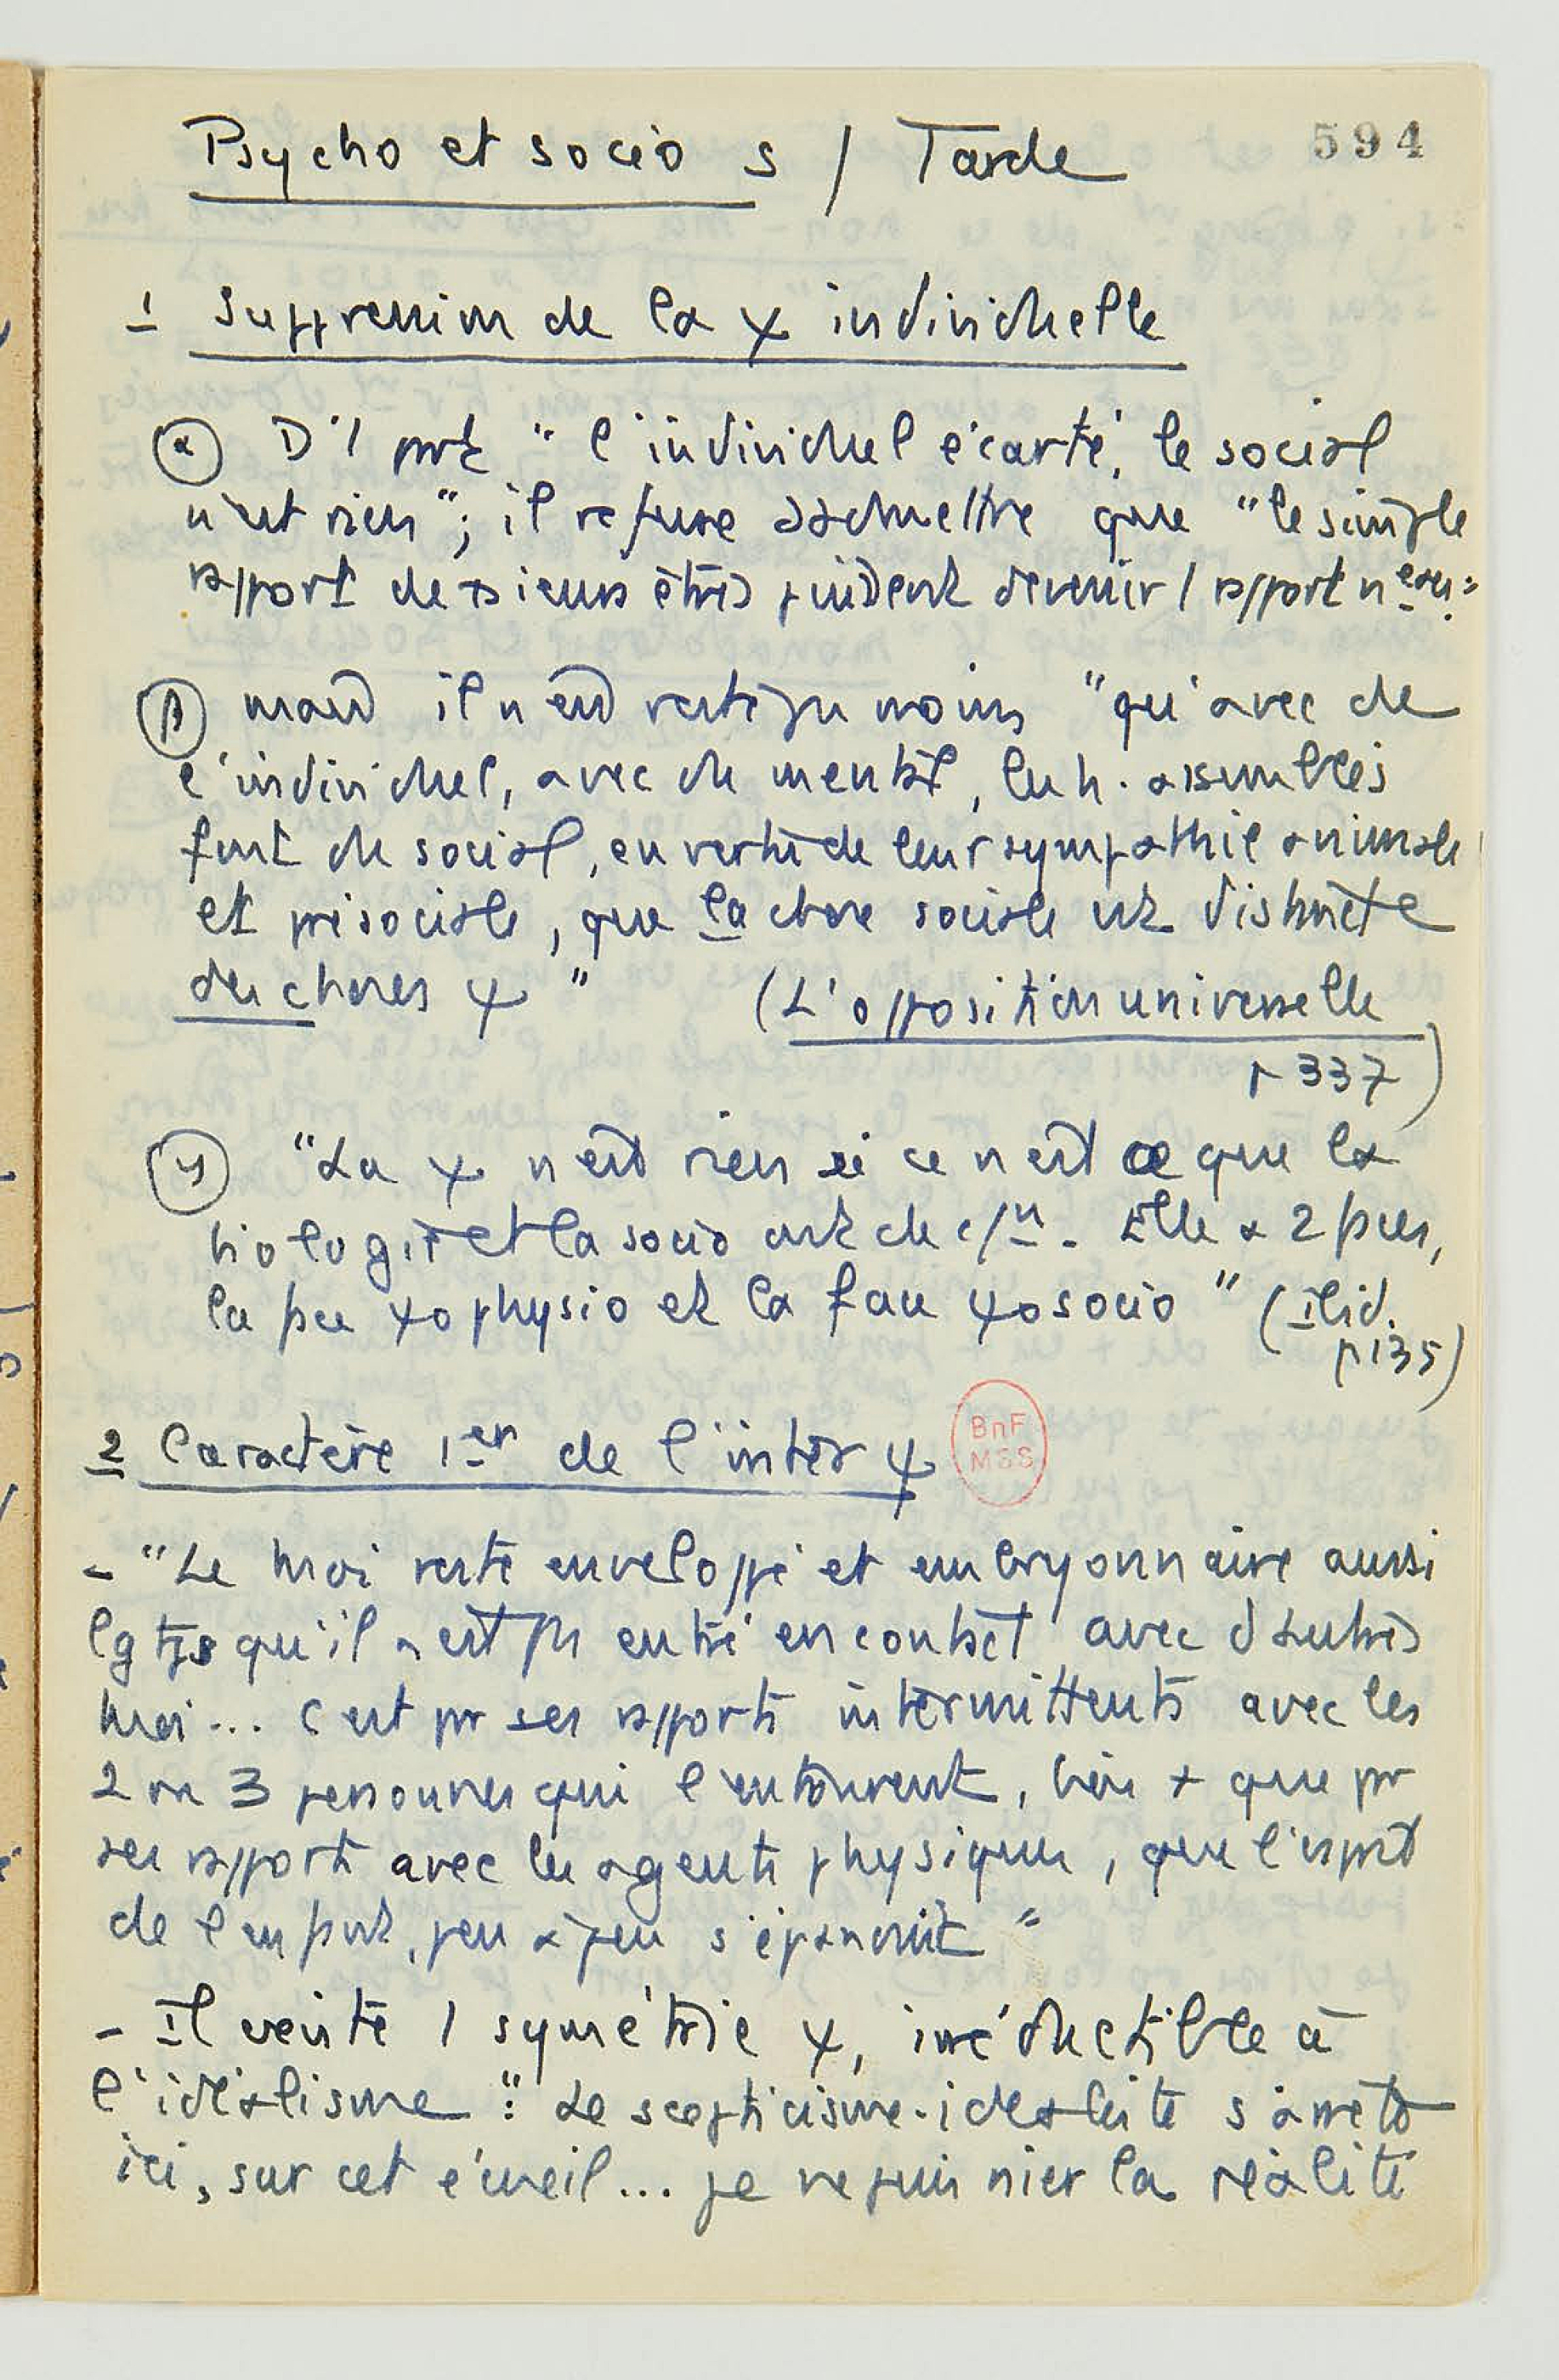 Psycho et socio s / Tarde
594
1 Suppression de la ψ individuelle
α D'1 part "l'individuel écarté, le social
n'est rien"; il refuse d'admettre que "le simple
rapport de +sieurs êtres puissent devenir 1 rapport
β mais il n'en reste pas moins "qu'avec de
l'individuel, avec du mental, les h. assemblés
font du social, en vertu de leur sympathie animale
et présociale, que la chose sociale est distincte
des choses ψ"
(L'opposition universelle
p 337)
γ "La ψ n'est rien si ce n'est ce que la
biologie et la socio ont de c/n. Elle a 2 faces,
la face ψo physio et la face ψo socio" (ibid.
p 135)
2 Caractère 1er de l'inter ψ
BnF
MSS
- "Le moi reste enveloppé et embryonnaire aussi
lgtps qu'il n'est pas entré en contact avec d'autres
moi... c'est par ses rapports intermittents avec les
2 ou 3 personnes qui l'entourent, bien + que par
ses rapports avec les agents physiques, que l'esprit
de l'enfant, peu à peu s'épanouit"
- Il existe 1 symétrie ψ, irréductible à
l'idéalisme : "Le scepticisme-idéaliste s'arrête
ici, sur cet écueil... je ne puis nier la réalité